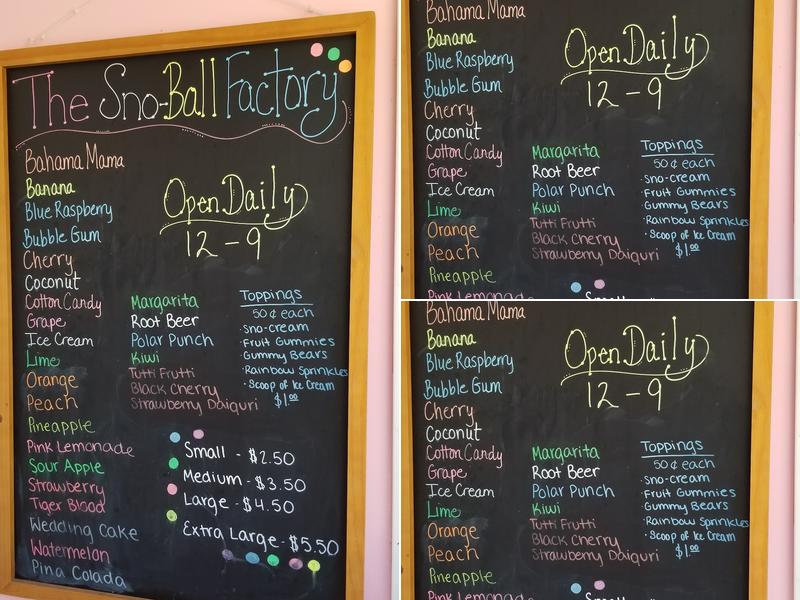 The Sno-Ball Factory
Bahama Mama
Banana
Blue Raspberry
Bubble Gum
Cherry
Coconut
Cotton Candy
Grape
Ice Cream
Lime
Orange
Peach
Pineapple
Pink Lemonade
Sour Apple
Strawberry
Tiger Blood
Wedding Cake
Watermelon
Pina Colada
Open Daily
12 - 9
Margarita
Root Beer
Polar Punch
Kiwi
Tutti Frutti
Black Cherry
Strawberry Daiquri
Toppings
50¢ each
·Sno-cream
·Fruit Gummies
·Gummy Bears
·Rainbow Sprinkles
·Scoop of Ice Cream
$1.00
Small - $2.50
Medium - $3.50
Large - $4.50
Extra Large - $5.50
Bahama Mama
Banana
Blue Raspberry
Bubble Gum
Cherry
Coconut
Cotton Candy
Grape
Ice Cream
Lime
Orange
Peach
Pineapple
Pink Lemonade
Open Daily
12 - 9
Margarita
Root Beer
Polar Punch
Kiwi
Tutti Frutti
Black Cherry
Strawberry Daiquri
Toppings
50¢ each
·Sno-cream
·Fruit Gummies
·Gummy Bears
·Rainbow Sprinkles
·Scoop of Ice Cream
$1.00
Bahama Mama
Banana
Blue Raspberry
Bubble Gum
Cherry
Coconut
Cotton Candy
Grape
Ice Cream
Lime
Orange
Peach
Pineapple
Pink Lemonade
Open Daily
12 - 9
Margarita
Root Beer
Polar Punch
Kiwi
Tutti Frutti
Black Cherry
Strawberry Daiquri
Toppings
50¢ each
·Sno-cream
·Fruit Gummies
·Gummy Bears
·Rainbow Sprinkles
·Scoop of Ice Cream
$1.00